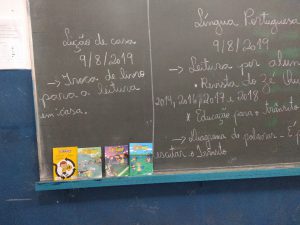 Lição de casa
9/8/2019
→ Troca de livro
para a leitura
em casa.
Língua Portuguesa
9/8/2019
→ Leitura por
• Revista do Zé
2014, 2016, 2017 e 2018
* Educação para o trânsito
→ Diagrama de palavras -
o trânsito